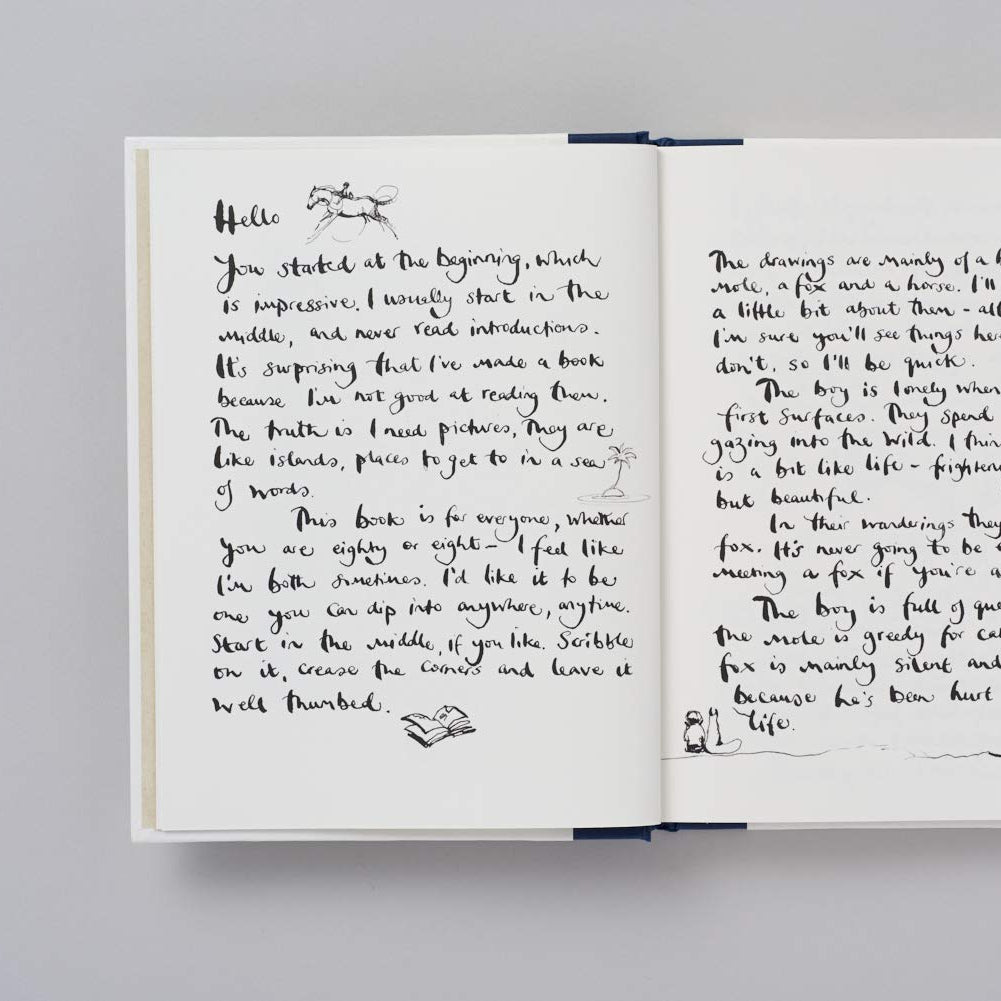 Hello
You started at the beginning, which
is impressive. I usually start in the
middle, and never read introductions.
It's surprising that I've made a book
because I'm not good at reading them.
The truth is I need pictures, They are
like islands, places to get to in a sea
of words.
This book is for everyone, whether
you are eighty or eight - I feel like
I'm both sometimes. I'd like it to be
one you can dip into anywhere, anytime.
Start in the middle, if you like. Scribble
on it, crease the corners and leave it
well thumbed.
The drawings are mainly of a
mole, a fox and a horse. I'll
a little bit about them - al
I'm sure you'll see things her
don't, so I'll be quick.
The boy is lonely when
first surfaces. They spend
gazing into the wild. I thin
is a bit like life - frighten
but beautiful.
In their wanderings they
fox. It's never going to be
meeting a fox if you're a
The boy is full of que
the mole is greedy for ca
fox is mainly silent and
because he's been hurt
life.